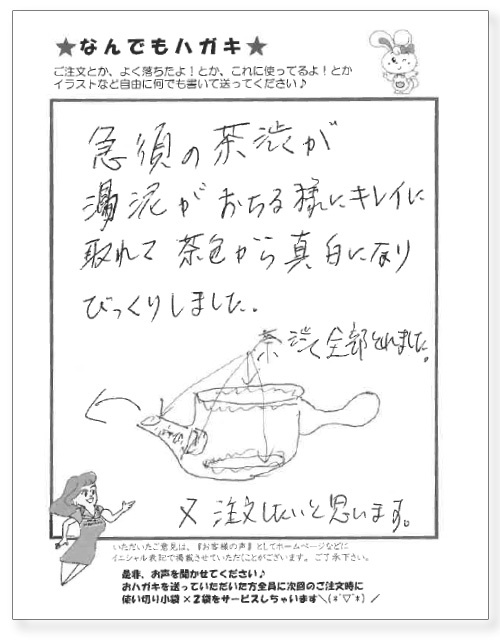 ★なんでもハガキ★
ご注文とか、よく落ちたよ！とか、これに使ってるよ！とか
イラストなど自由に何でも書いて送ってください♪
急須の茶渋が
泥がおちる様にキレイに
取れて茶色から真白になり
びっくりしました。
茶渋全部とれました。
又注文したいと思います。
いただいたご意見は、『お客様の声』としてホームページなどに
イニシャル表記で掲載させていただくことがございます。ご了承下さい。
是非、お声を聞かせてください♪
おハガキを送っていただいた方全員に次回のご注文時に
使い切り小袋×２袋をサービスしちゃいます＼(*´▽`*)／